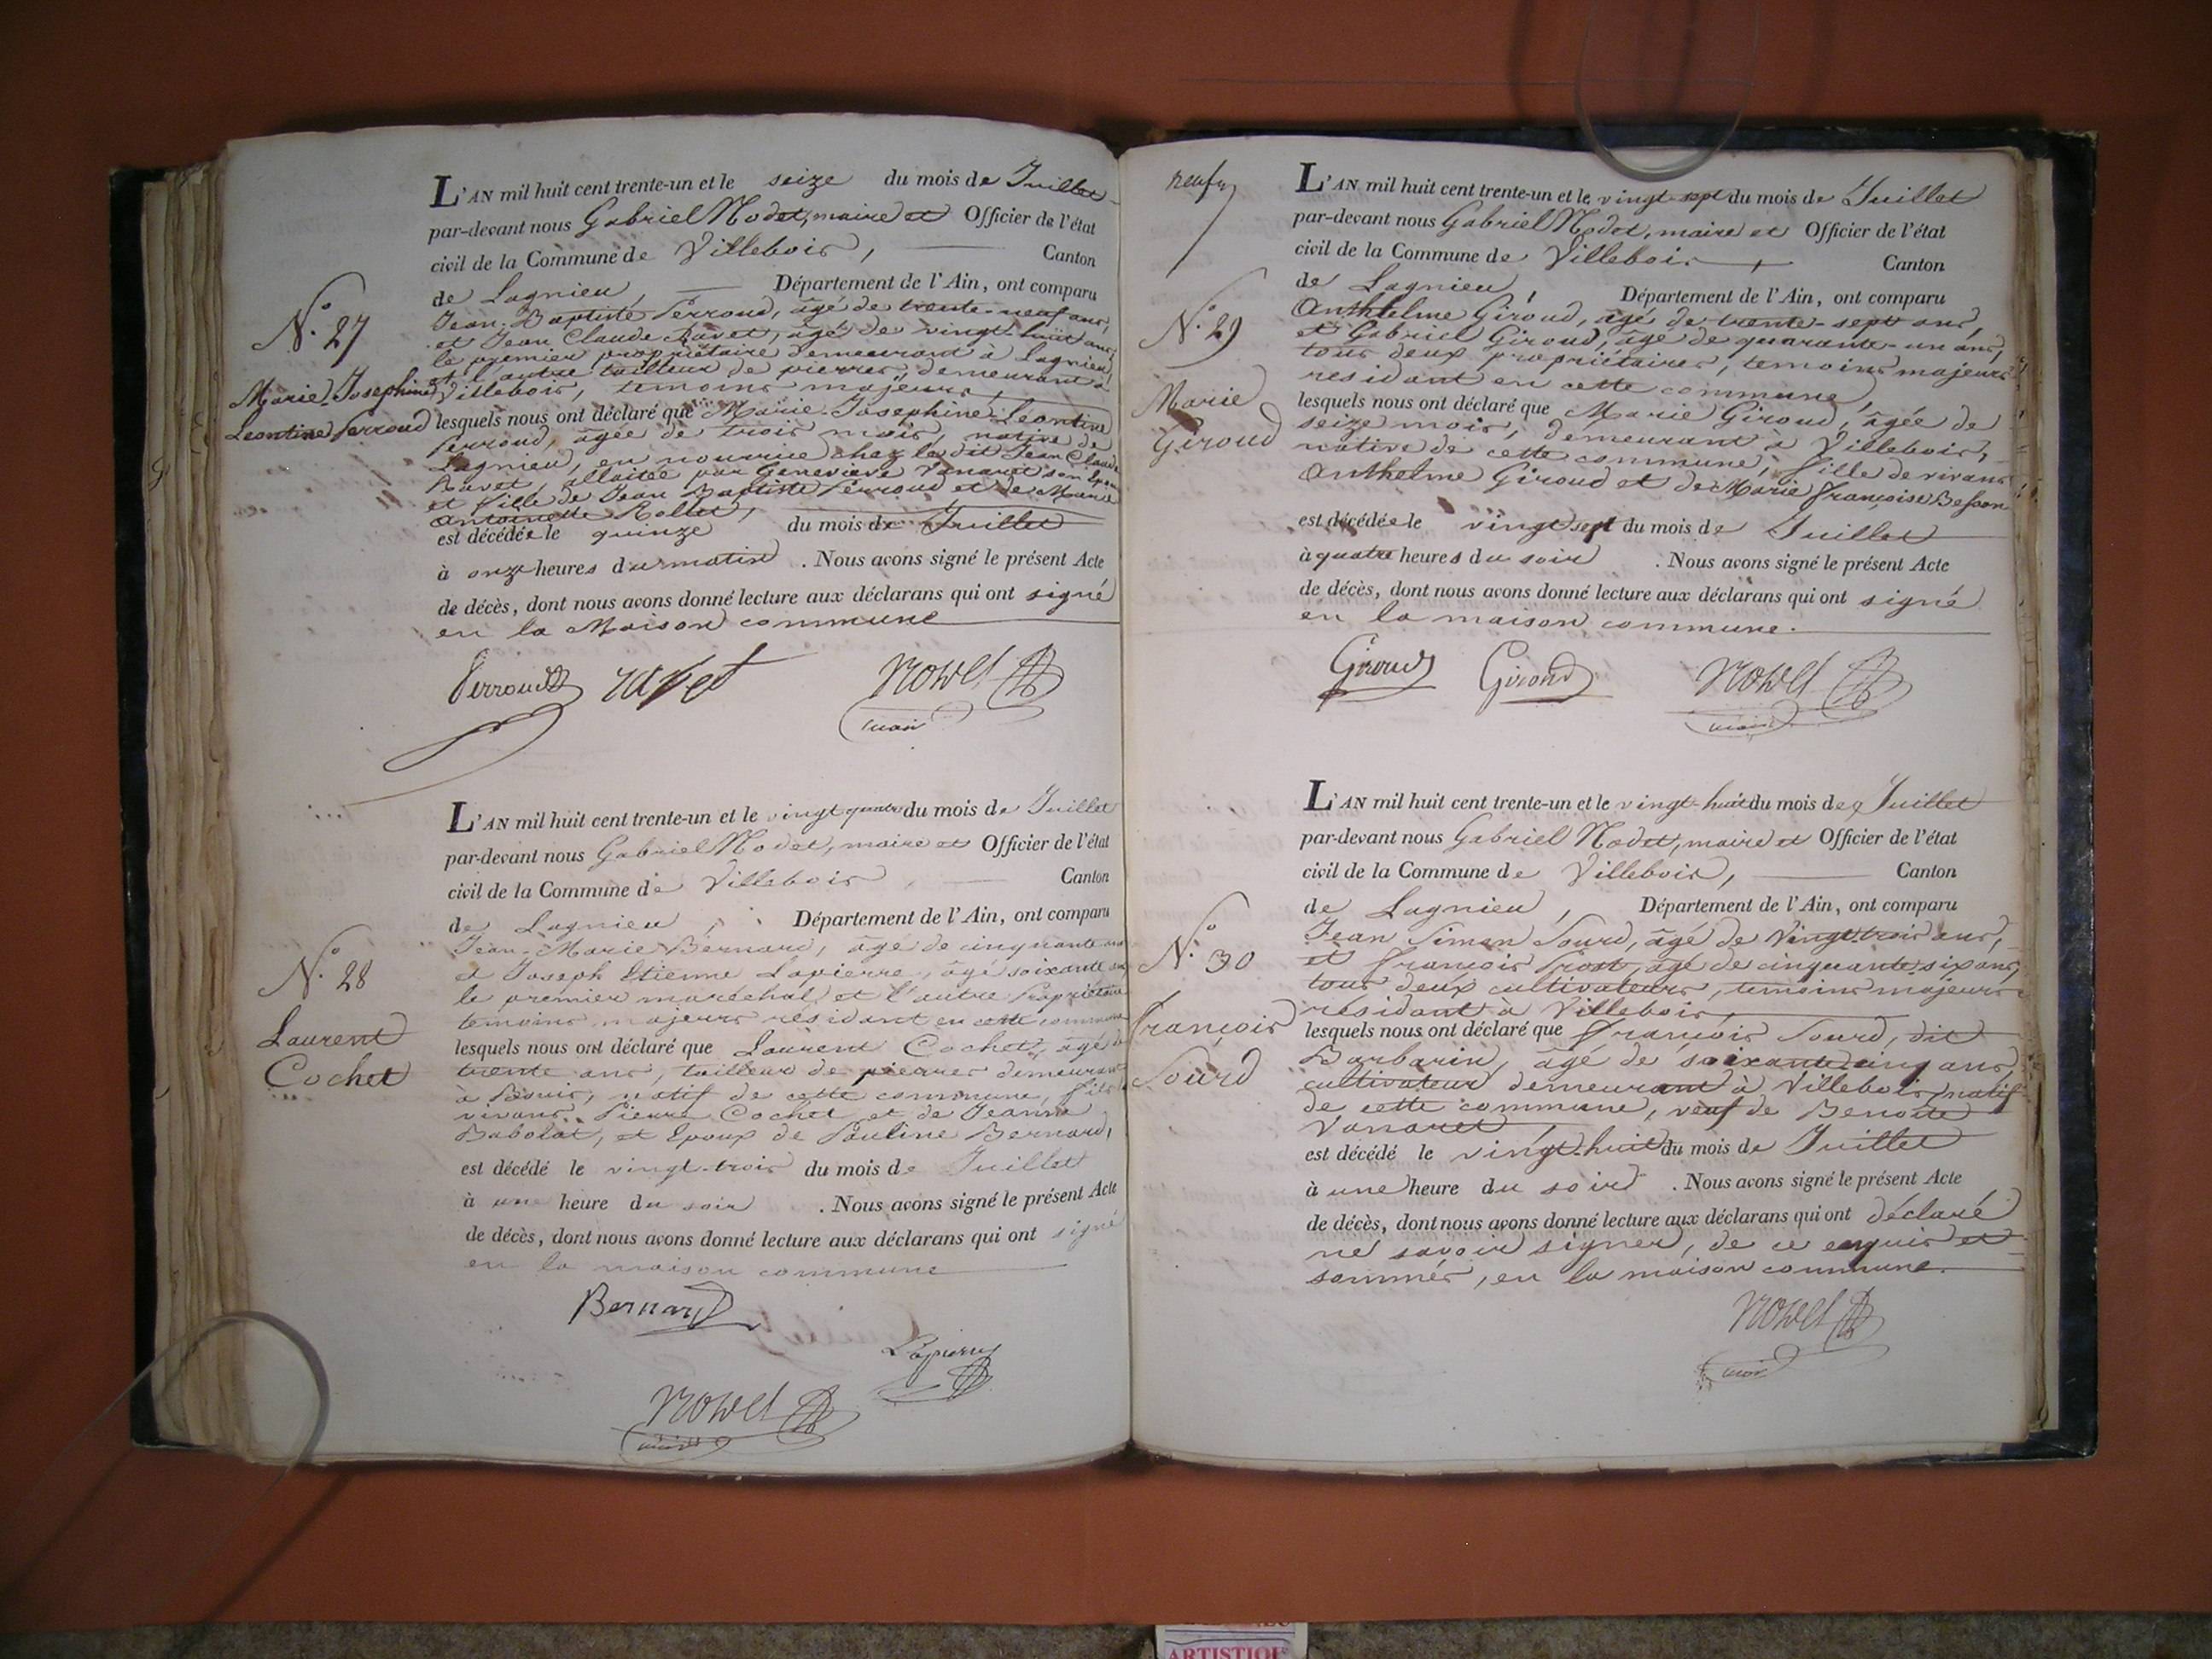 L'AN mil huit cent trente-un et le seize du mois de Juillet
par-devant nous Gabriel Nodet, maire et Officier de l'état
civil de la Commune de Villebois, Canton
de Lagnieu Département de l'Ain, ont comparu
Jean-Baptiste Perroud, âgé de trente-neuf ans,
et Jean Claude Ravet, âgé de vingt-huit ans,
le premier propriétaire demeurant à Lagnieu,
et l'autre tailleur de pierres, demeurant à
Villebois, temoins majeurs
N.º 27
Marie-Josephine
Leontine Perroud
lesquels nous ont déclaré que Marie-Josephine-Leontine
Perroud, âgée de trois mois, native de
Lagnieu, en nourrice chez le dit Jean Claude
Ravet, allaitée par Genevieve Vanaret son épouse
et fille de Jean Baptiste Perroud et de Marie
Antoinette Rollet,
est décédée le quinze du mois de Juillet
à onze heures du matin . Nous avons signé le présent Acte
de décès, dont nous avons donné lecture aux déclarans qui ont signé
en la Maison commune
Perroud ravet Nodet
maire
L'AN mil huit cent trente-un et le vingt quatre du mois de Juillet
par-devant nous Gabriel Nodet, maire et Officier de l'état
civil de la Commune de Villebois Canton
de Lagnieu, Département de l'Ain, ont comparu
Jean-Marie Bernard, âgé de cinquante ans
et Joseph Etienne Lapierre, âgé soixante ans
le premier maréchal et l'autre Propriétaire
temoins majeurs résidant en cette commune
N.º 28
Laurent
Cochet
lesquels nous ont déclaré que Laurent Cochet, âgé de
trente ans, tailleur de pierres demeurant
à Bouis, natif de cette commune, fils
vivans Pierre Cochet et de Jeanne
Babolat, et Epoux de Pauline Bernard,
est décédé le vingt-trois du mois de Juillet
à une heure du soir . Nous avons signé le présent Acte
de décès, dont nous avons donné lecture aux déclarans qui ont signé
en la maison commune
Bernard
Lapierre
Nodet
maire
L'AN mil huit cent trente-un et le vingt-sept du mois de Juillet
par-devant nous Gabriel Nodet, maire et Officier de l'état
civil de la Commune de Villebois Canton
de Lagnieu, Département de l'Ain, ont comparu
Anthelme Giroud, âgé de trente-sept ans,
et Gabriel Giroud, âgé de quarante-un ans,
tous deux propriétaires, temoins majeurs
residant en cette commune,
N.º 29
Marie
Giroud
lesquels nous ont déclaré que Marie Giroud, âgée de
seize mois, demeurant à Villebois,
native de cette commune, fille de vivans
Anthelme Giroud et de Marie Françoise Besson
est décédée le vingt sept du mois de Juillet
à quatre heures du soir . Nous avons signé le présent Acte
de décès, dont nous avons donné lecture aux déclarans qui ont signé
en la maison commune.
Giroud Giroud Nodet
maire
L'AN mil huit cent trente-un et le vingt-huit du mois de Juillet
par-devant nous Gabriel Nodet, maire et Officier de l'état
civil de la Commune de Villebois, Canton
de Lagnieu, Département de l'Ain, ont comparu
Jean Simon Sourd, âgé de vingt-trois ans,
et François Prost, âgé de cinquante-six ans,
tous deux cultivateurs, temoins majeurs
résidant à Villebois
N.º 30
François
Sourd
lesquels nous ont déclaré que François Sourd, dit
Barbarin, âgé de soixante cinq ans,
cultivateur demeurant à Villebois, natif
de cette commune, veuf de Benoite
Vanaret,
est décédé le vingt-huit du mois de Juillet
à une heure du soir . Nous avons signé le présent Acte
de décès, dont nous avons donné lecture aux déclarans qui ont déclaré
ne savoir signer, de ce enquis et
sommés, en la maison commune.
Nodet
maire
ARTISTIQUE